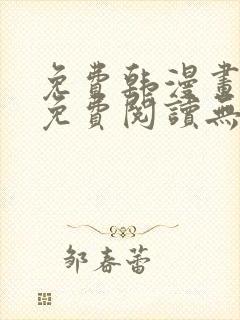 免費韩漫畫
免費閱讀無
邹春蕾